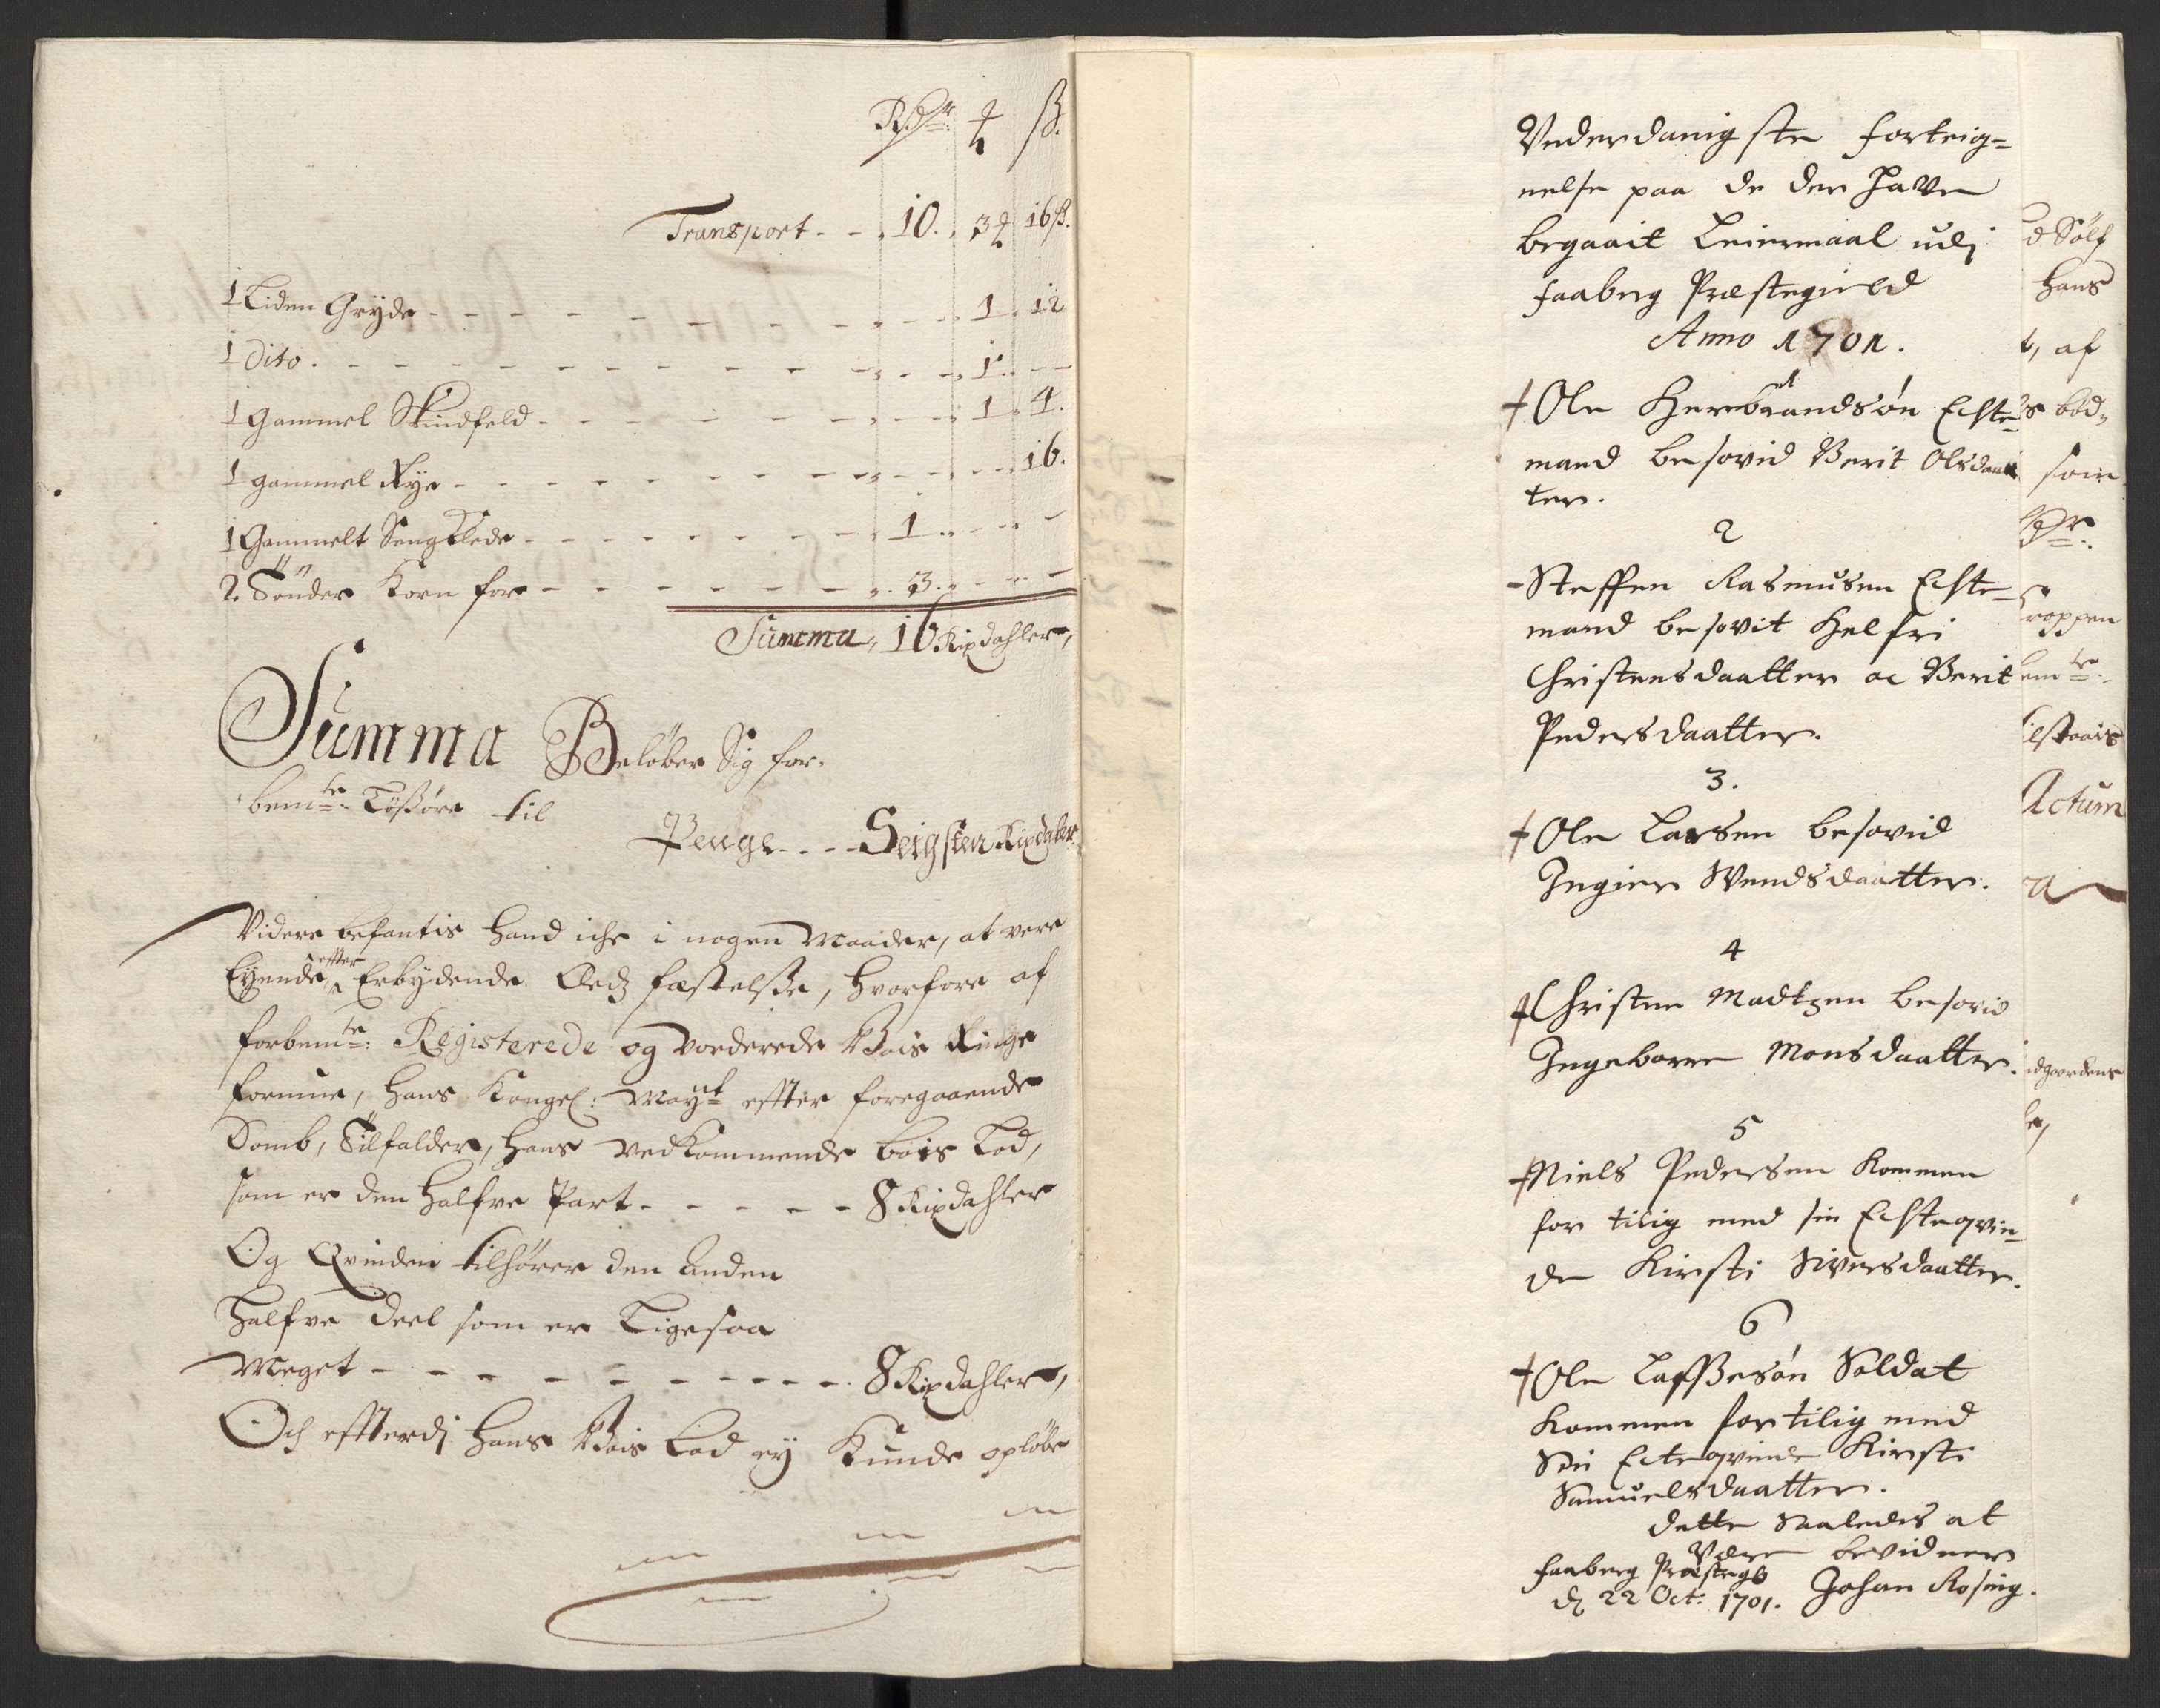 Rdr: ß.
Transport - - 10. 3 16 ß.
1 Liden Gryde - - - 1. 12
1 Dito - - - 1. -
1 gammel Skindfeld - - - 1. 4.
1 gammel Rye - - - 16.
1 Gammelt Sengklede - - - 1. - -
2 Tønder Korn for - - - 3. - -
Summa, 16 Rixdahler,
Summa Beløber Sig for-
bemte: Løsøre til
Penge - - - Seigsten Rixdaler
Videre befantis hand iche i nogen Maader, at vere
Eyende, effter Erbydende Eedz fæstelsse, hvorfore af
forbemte: Registerede og vorderede Bois Ringe
formue, hans Kongel: Mayt effter foregaaende
Domb, Tilfalder, hans vedkommende boes Lod,
som er den halfve Part - - - - - 8 Rixdahler
Og Qvinden tilhører den anden
halfve Deel som er Ligesaa
Meget - - - - - - - - - 8 Rixdahler,
Och effterdj hans Bois Lod ey Kunde opløbe
Vnderdanigste forteig=
nelse paa de der have
begaait Leiermaal udj
Faaberg Præstegield
Anno 1701.
Ole Herbrandsøn Echte=
mand besovid Berit Olsdaat
ter.
2
Steffen Rasmusen Echte=
mand besovit Helfri
Christensdaatter oc Berit
Pedersdaatter.
3.
Ole Larsen besovid
Ingier Svendsdaatter.
4
Christen Madtzen besovid
Ingeborre Monsdaatter.
5
Niels Pedersen Kommen
for tilig med sin Echteqvin=
de Kirsti Siversdaatter.
6
Ole Lassesøn Soldat
Kommen for tilig med
Sin Ecteqvinde Kirsti
Samuelsdaatter.
dette Saaledes at
Være bevidner
Faaberg Præstegd
dj 22 Oct: 1701. Johan Rosing.
d Sølf
hans
t, af
s bod,
som
roppen
emte:
ilstaais
Actum
a
idgaardens